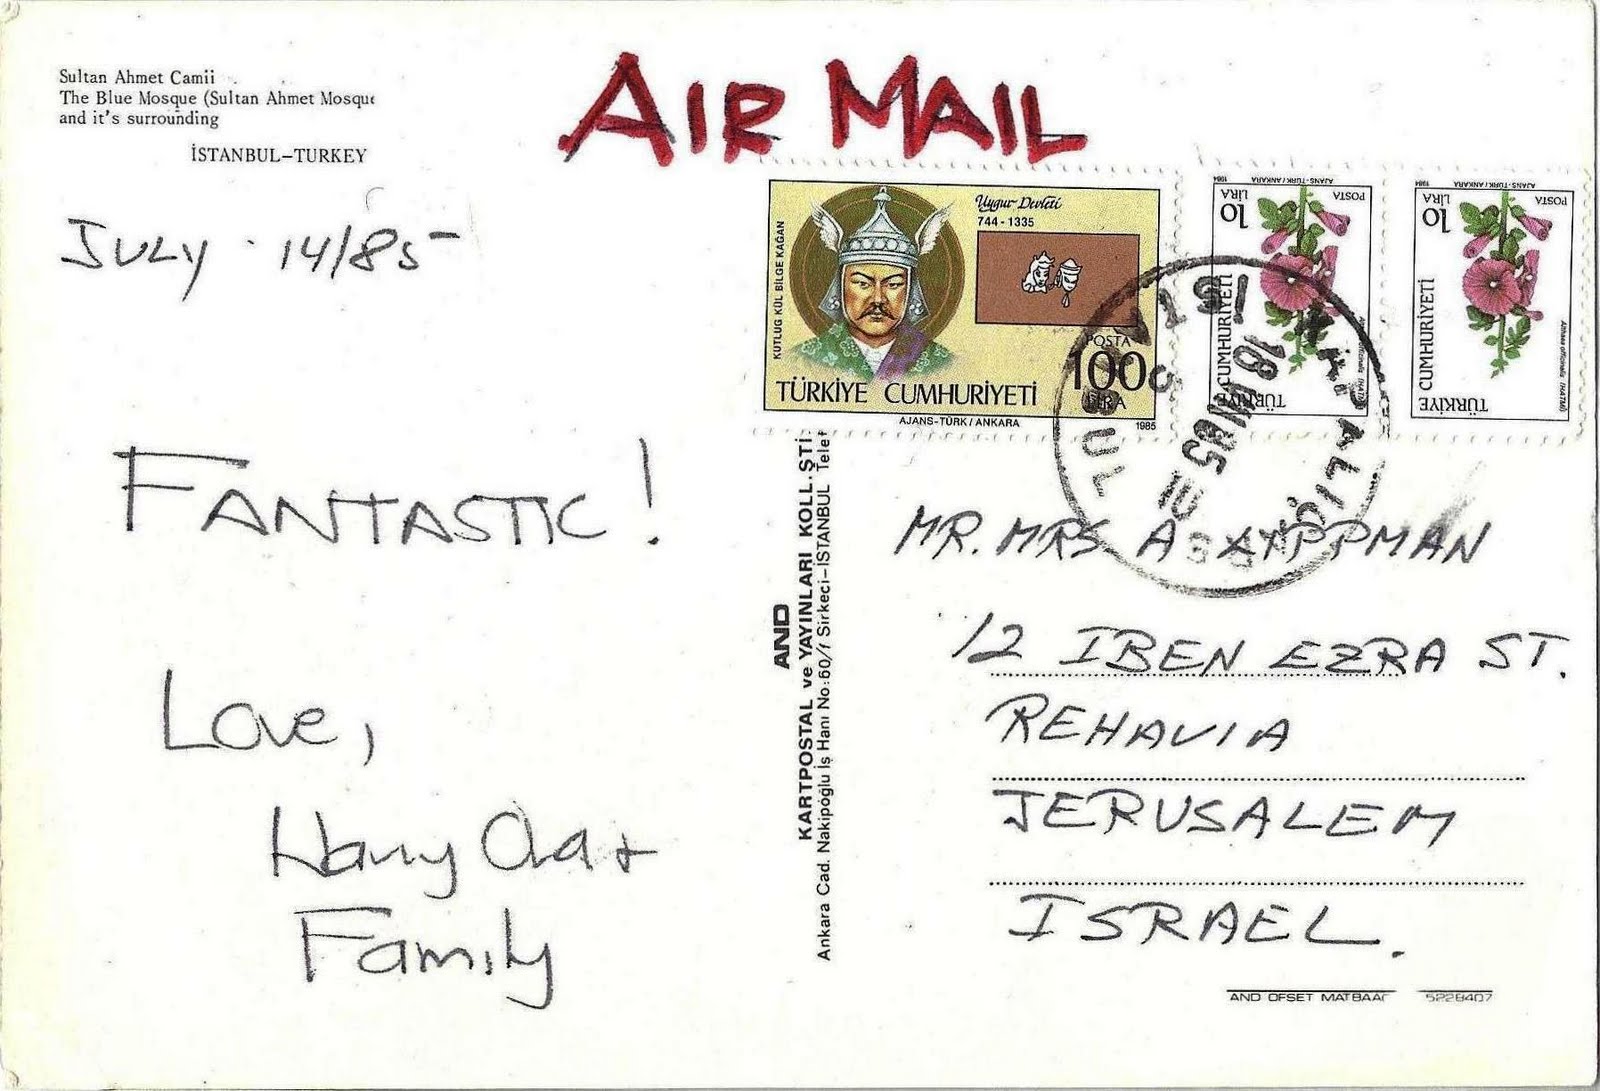 Sultan Ahmet Camii
The Blue Mosque (Sultan Ahmet Mosque
and it's surrounding
İSTANBUL–TURKEY
AIR MAIL
JULY 14/85
FANTASTIC!
LOVE,
Harry &
Family
KUTLUG KÜL BİLGE KAĞAN
Uygur Devleti
744 - 1335
POSTA
100
LİRA
TÜRKİYE CUMHURİYETİ
AJANS-TÜRK / ANKARA
1985
1984
AJANS-TÜRK / ANKARA
10
LİRA
POSTA
TÜRKİYE
CUMHURİYETİ
1984
AJANS-TÜRK / ANKARA
10
LİRA
POSTA
TÜRKİYE
CUMHURİYETİ
Althaea officinalis (HATMİ)
KAPALIÇARŞI
18 VII 85
10
AND
KARTPOSTAL ve YAYINLARI KOLL. ŞTİ
Ankara Cad. Nakipoğlu İş Hanı No:60/1 Sirkeci–İSTANBUL Telef
MR. MRS A
12 IBEN EZRA ST.
REHAVIA
JERUSALEM
ISRAEL.
AND OFSET MATBAAC 5228407